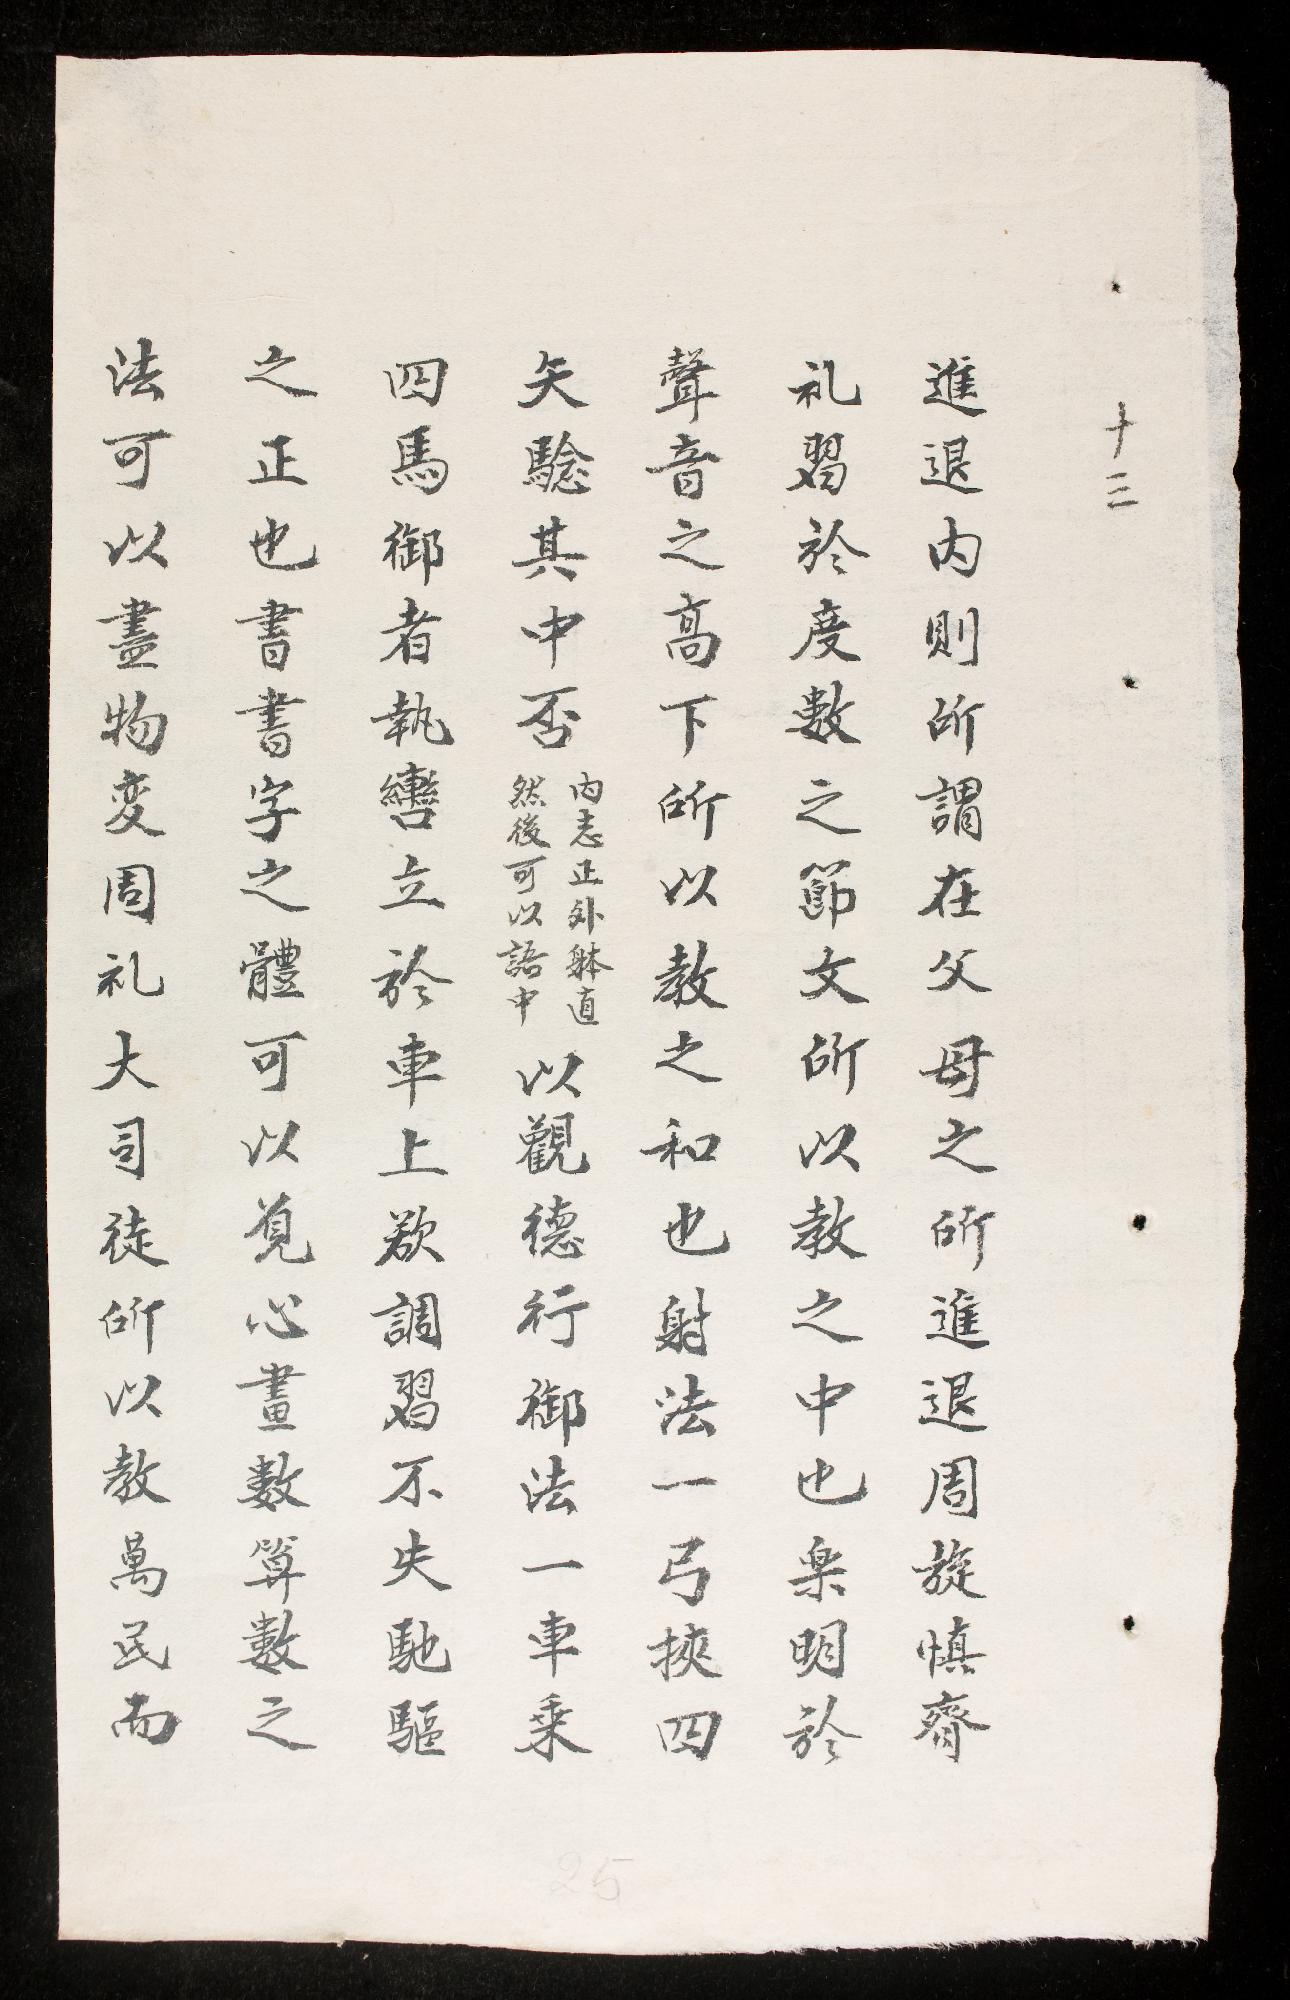 十三
進退内則所謂在父母之所進退周旋慎齊
礼習於度數之節文所以教之中也楽明於
聲音之高下所以教之和也射法一弓挾四
矢騐其中否
内志正外躰直
然後可以語中
以觀德行御法一車乗
四馬御者執轡立於車上欲調習不失馳驅
之正也書書字之體可以覓心畫數算數之
法可以盡物変周礼大司徒所以教萬民而
25